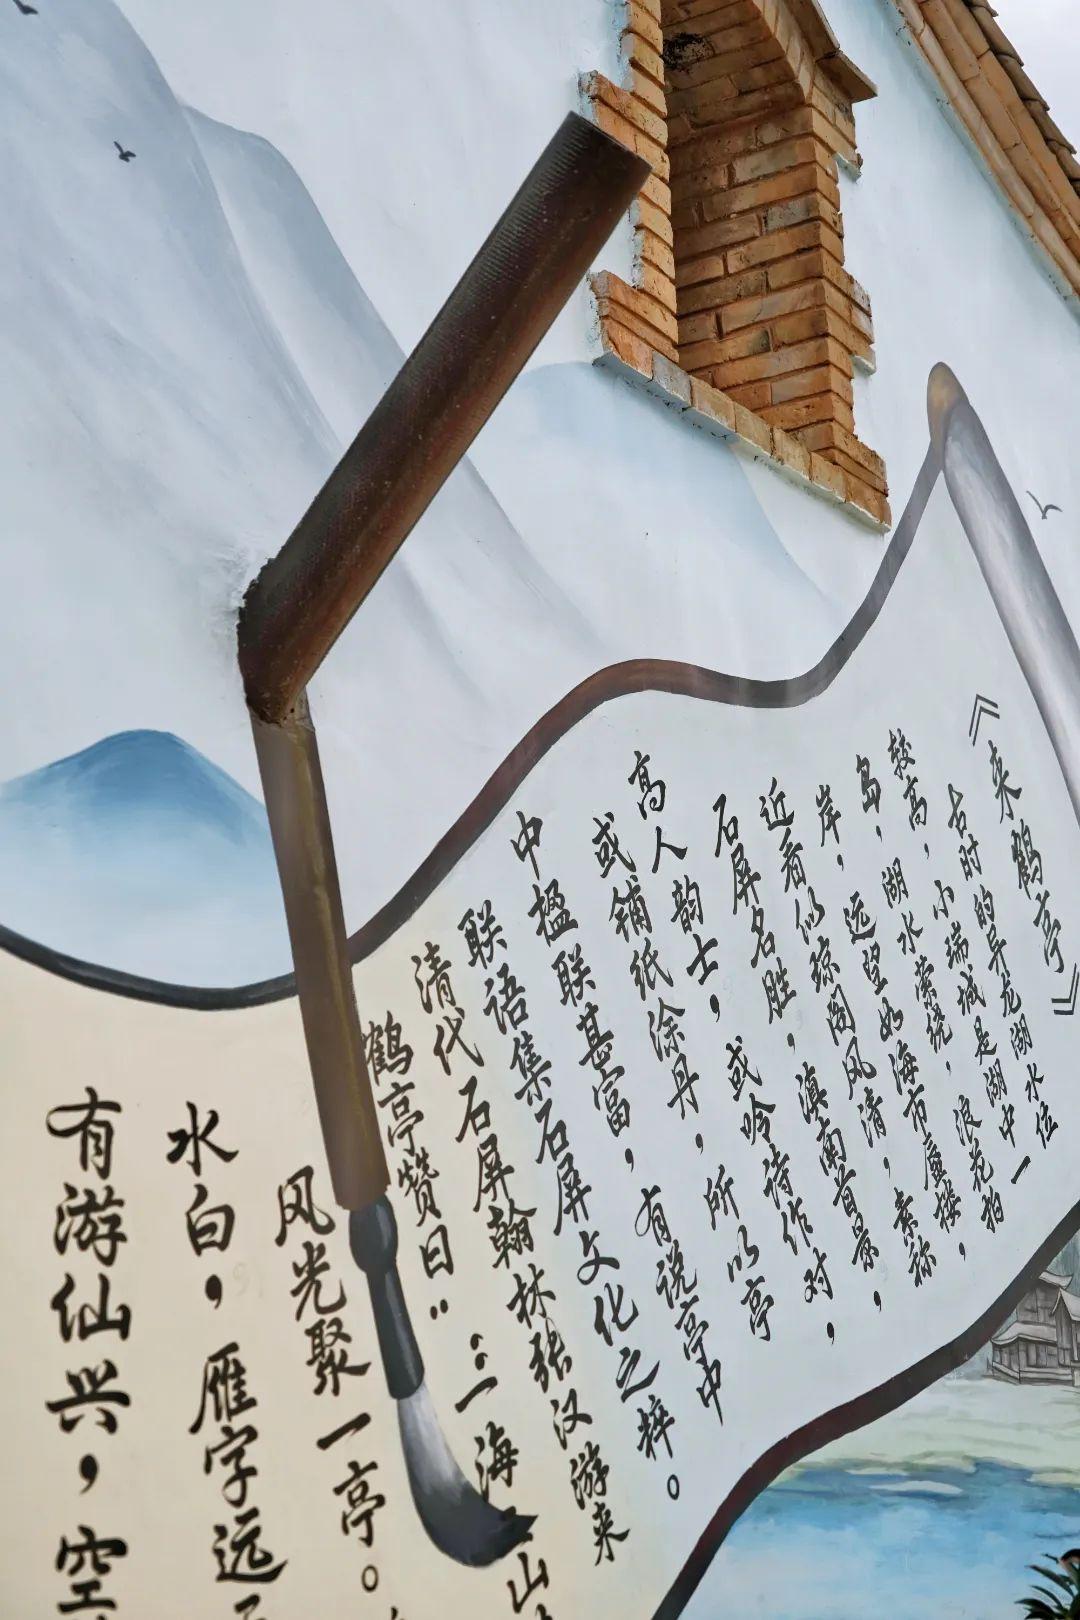 《来鹤亭》
古时的异龙湖水位
较高，小瑞城是湖中一
岛，湖水萦绕，浪花拍
岸，远望如海市蜃楼，
近看似琼阁风清，素称
石屏名胜，滇南首景，
高人韵士，或吟诗作对，
或铺纸涂丹，所以亭
中楹联甚富，有说亭中
联语集石屏文化之粹。
清代石屏翰林张汉游来
鹤亭赞曰：“一海山
风光聚一亭。
水白，雁字远
有游仙兴，空